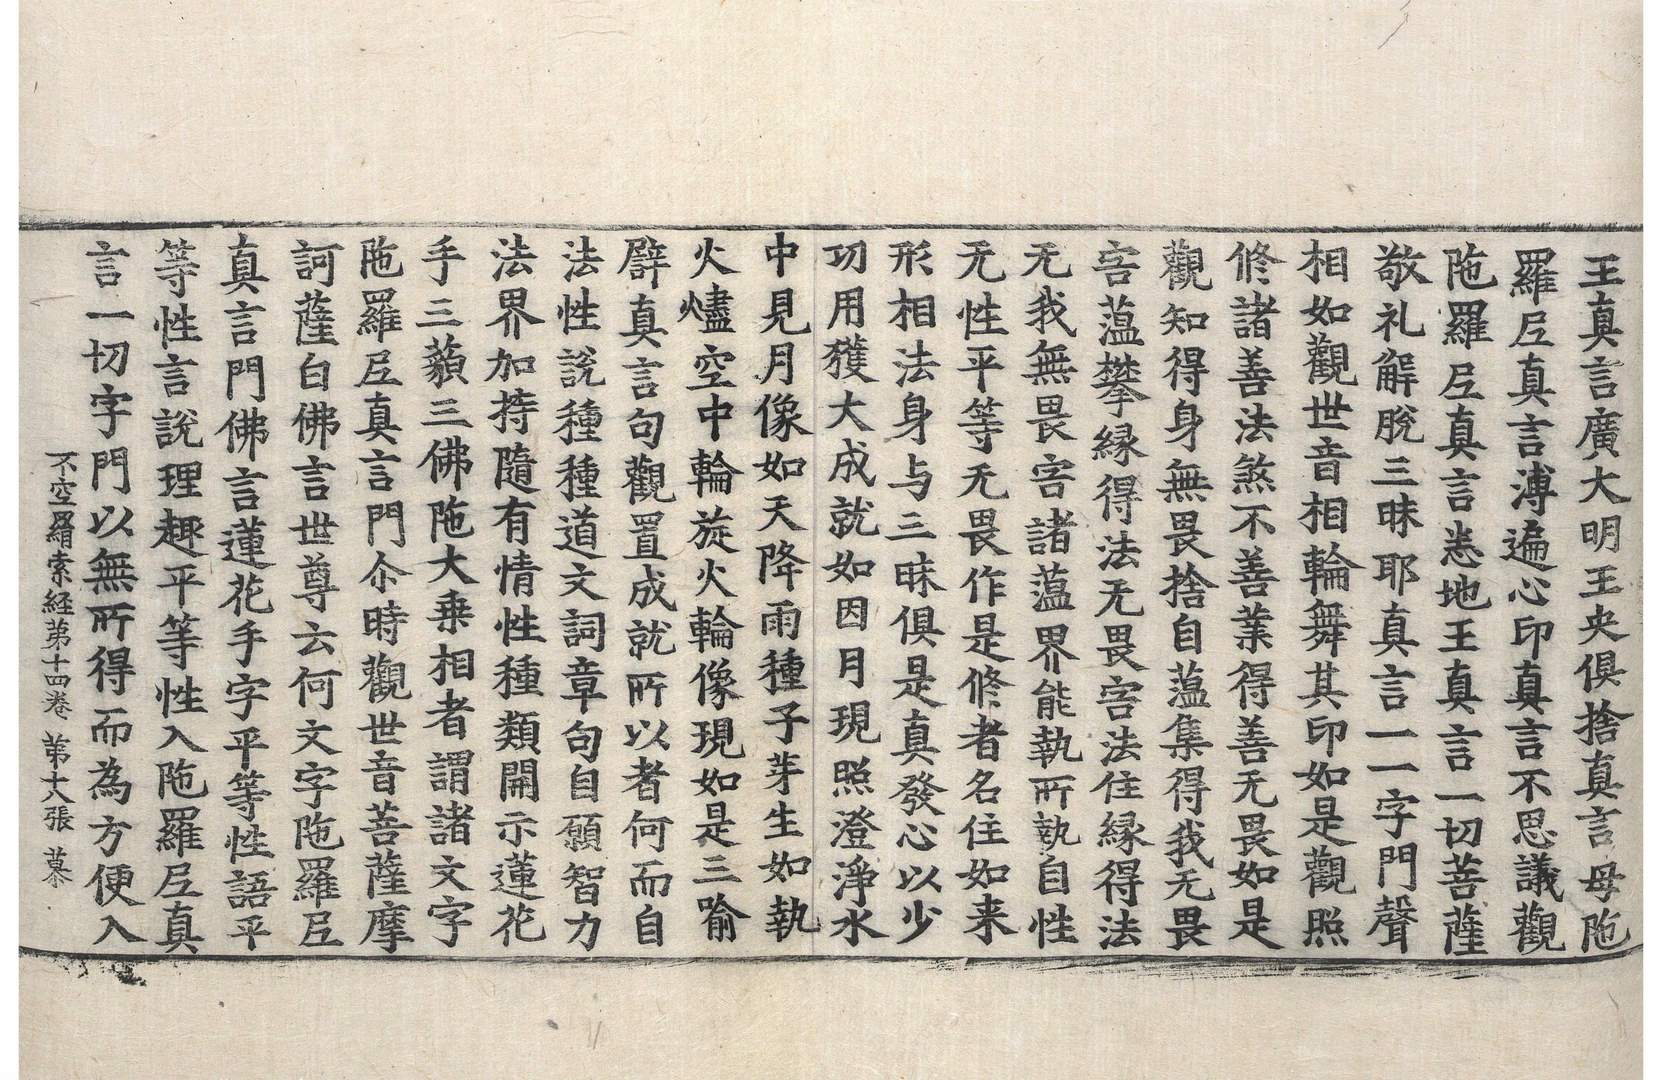 王真言廣大明王央俱捨真言母陁
羅𡰱真言溥遍心印真言不思議觀
陁羅𡰱真言悉地王真言一切菩薩
敬礼解脫三昧耶真言一一字門聲
相如觀世音相輪舞其印如是觀照
修諸善法煞不善業得善无畏如是
觀知得身無畏捨自薀集得我无畏
害薀攀縁得法无畏害法住縁得法
无我無畏害諸薀界能執所執自性
无性平等无畏作是修者名住如来
形相法身与三昧俱是真發心以少
功用獲大成就如因月現照澄淨水
中見月像如天降雨種子芽生如執
火燼空中輪旋火輪像現如是三喻
譬真言句觀置成就所以者何而自
法性說種種道文詞章句自願智力
法界加持隨有情性種類開示蓮花
手三藐三佛陁大乗相者謂諸文字
陁羅𡰱真言門尒時觀世音菩薩摩
訶薩白佛言世尊云何文字陁羅𡰱
真言門佛言蓮花手字平等性語平
等性言說理趣平等性入陁羅𡰱真
言一切字門以無所得而為方便入
不空羂索経苐十四卷 苐六張 慕